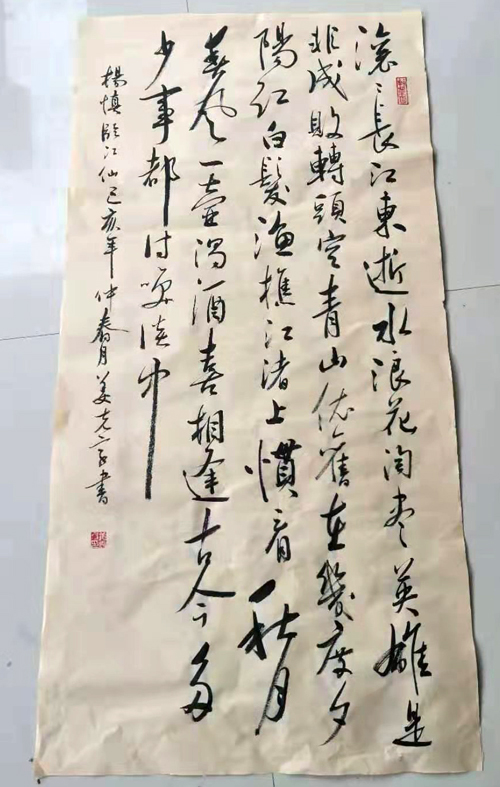 滚々長江東逝水浪花淘尽英雄是
非成敗轉頭空青山依舊在幾度夕
陽红白髮渔樵江渚上慣看秋月
春风一壶濁酒喜相逢古今多
少事都付笑谈中
楊慎臨江仙己亥年仲春月姜克書